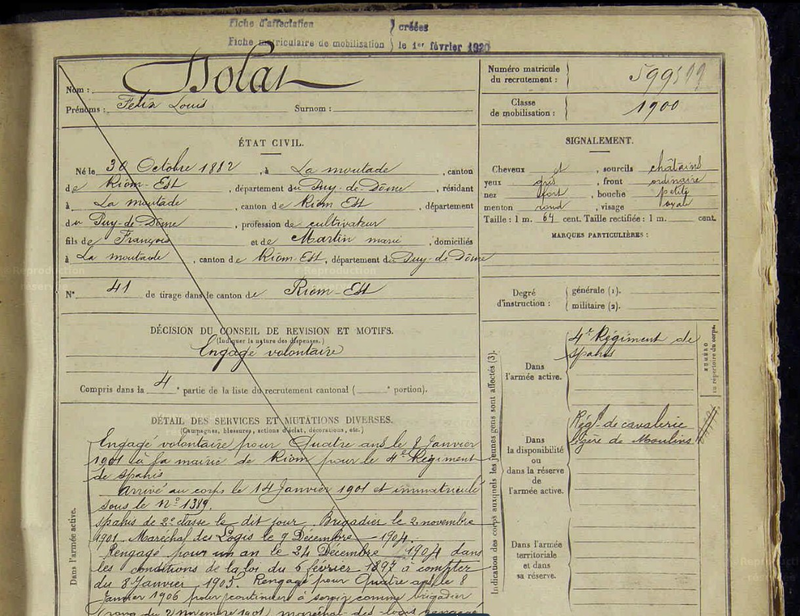 Fiche d'affectation } créées
Fiche matriculaire de mobilisation } le 1er février 1920
Nom : Dolat
Prénoms : Felix Louis Surnom :
Numéro matricule du recrutement : 599
Classe de mobilisation : 1900
ÉTAT CIVIL.
Né le 30 Octobre 1882, à La moutade, canton
de Riom-Est, département du Puy-de-Dôme, résidant
à La moutade, canton de Riom Est, département
du Puy-de-Dôme, profession de cultivateur
fils de François et de Martin marie, domiciliés
à La moutade, canton de Riom-Est, département de Puy-de-Dôme
N° 41 de tirage dans le canton de Riom-Est
SIGNALEMENT.
Cheveux et, sourcils châtains
yeux gris, front ordinaire
nez fort, bouche petite
menton rond, visage oval
Taille : 1 m. 64 cent. Taille rectifiée : 1 m. cent.
MARQUES PARTICULIÈRES :
Degré d'instruction : { générale (1).
militaire (2).
DÉCISION DU CONSEIL DE REVISION ET MOTIFS.
(Indiquer la nature des dispenses.)
Engagé volontaire
Compris dans la 4e partie de la liste du recrutement cantonal ( portion).
DÉTAIL DES SERVICES ET MUTATIONS DIVERSES.
(Campagnes, blessures, actions d'éclat, décorations, etc.)
Dans l'armée active.
Engagé volontaire pour Quatre ans le 8 Janvier
1901 à la mairie de Riom pour le 4e Régiment
de Spahis
Arrivé au corps le 14 Janvier 1901 et immatriculé
sous le N° 1319.
Spahis de 2e classe le dit jour, Brigadier le 2 novembre
1901 Maréchal des Logis le 9 Décembre 1904.
Rengagé pour un an le 24 Décembre 1904 dans
les conditions de la loi du 6 février 1897 à compter
du 8 Janvier 1905. Rengagé pour Quatre ans le 8
Janvier 1906 pour continuer à servir comme brigadier
du 2 novembre 1901, maréchal des logis
Indication des corps auxquels les jeunes gens sont affectés (3).
NUMÉRO au répertoire du corps.
Dans l'armée active.
4e Régiment de
Spahis
Dans la disponibilité ou dans la réserve de l'armée active.
Régt de cavalerie
légère de Moulins
Dans l'armée territoriale et dans sa réserve.
Reproduction